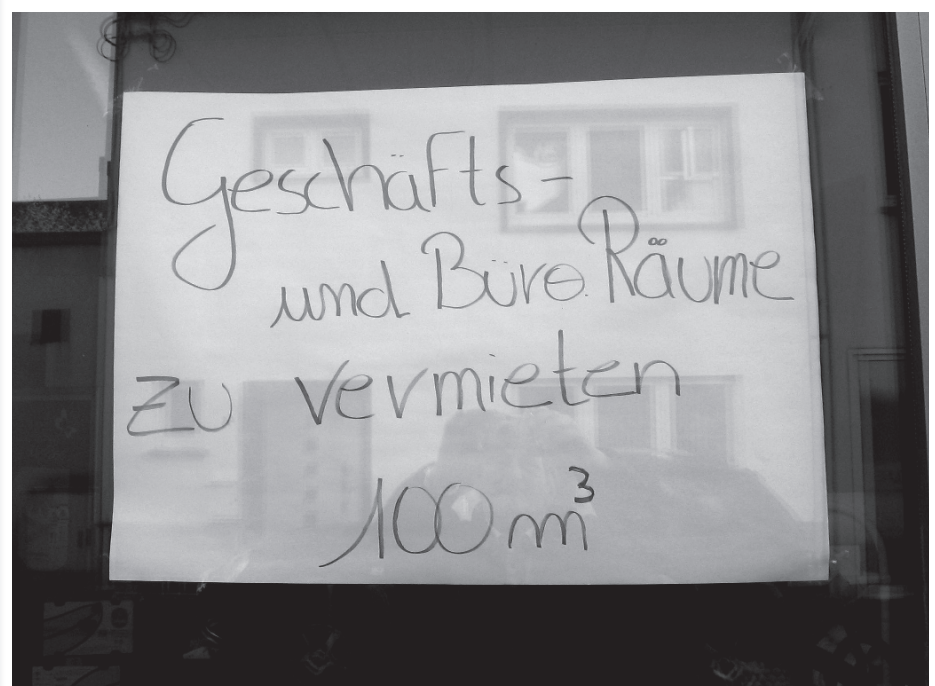 Geschäfts-
und Büro Räume
zu vermieten
100 m³